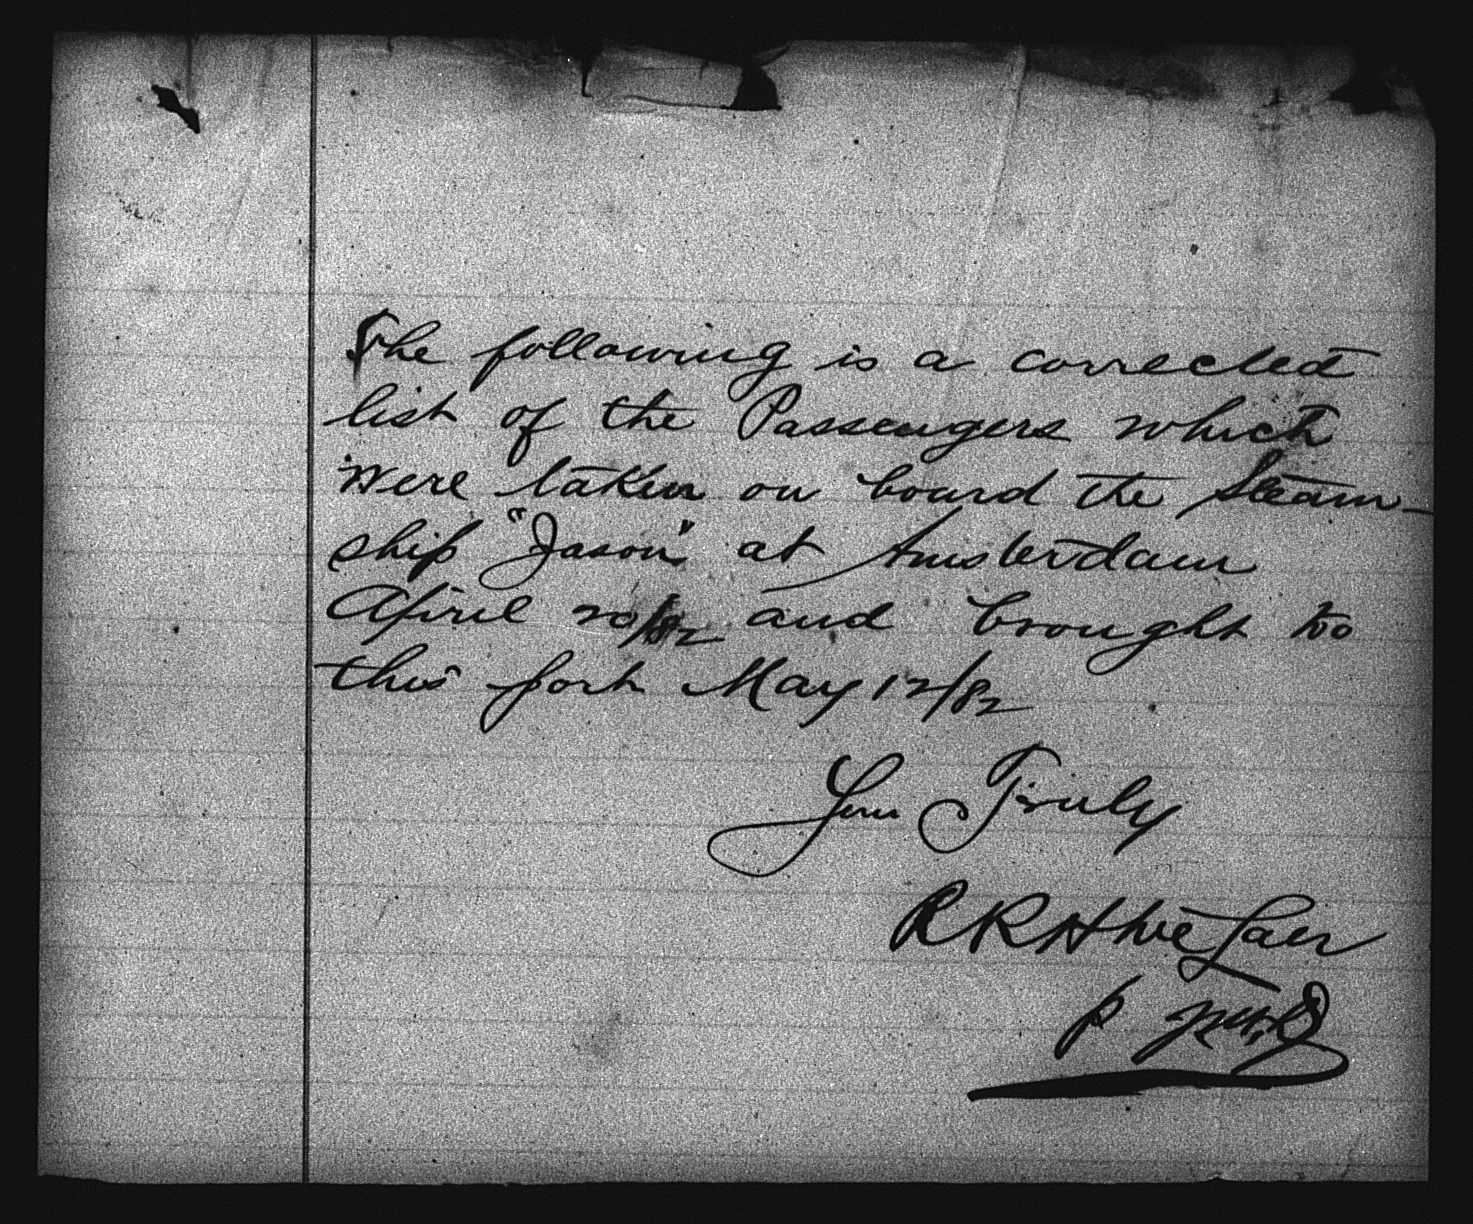 The following is a corrected
list of the Passengers which
were taken on board the Steam-
ship "Jason" at Amsterdam
April 20/82 and brought to
this port May 12/82
Your Truly
p